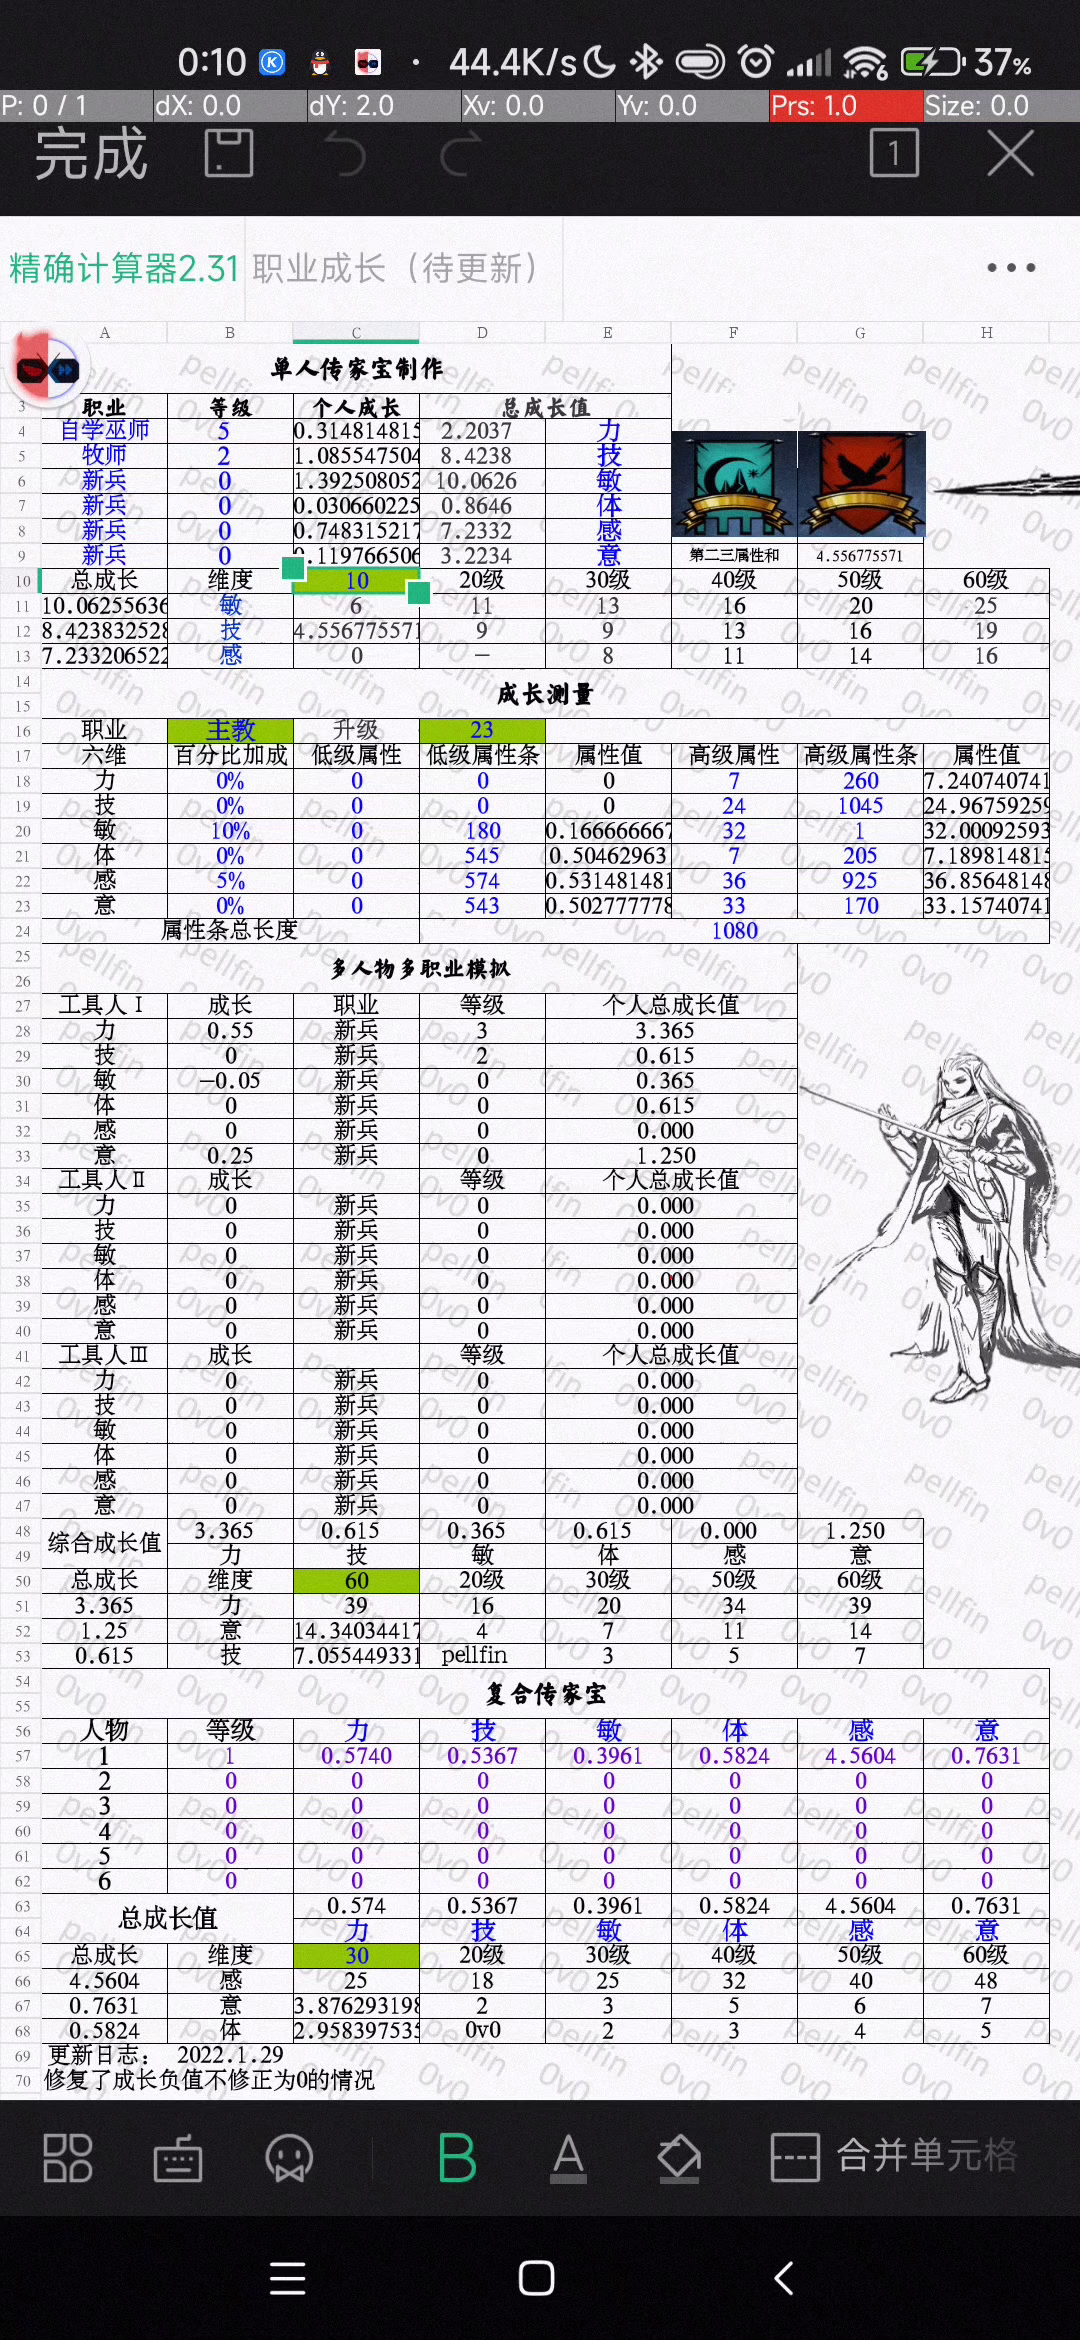 0:10 44.4K/s 6 37%
P: 0 / 1 dX: 0.0 dY: 2.0 Xv: 0.0 Yv: 0.0 Prs: 1.0 Size: 0.0
完成 1
精确计算器2.31 职业成长（待更新）
A B C D E F G H
单人传家宝制作
3 职业 等级 个人成长 总成长值
4 自学巫师 5 0.314814815 2.2037 力
5 牧师 2 1.085547504 8.4238 技
6 新兵 0 1.392508052 10.0626 敏
7 新兵 0 0.030660225 0.8646 体
8 新兵 0 0.748315217 7.2332 感
9 新兵 0 0.119766506 3.2234 意 第二三属性和 4.556775571
10 总成长 维度 10 20级 30级 40级 50级 60级
11 10.06255636 敏 6 11 13 16 20 25
12 8.423832528 技 4.556775571 9 9 13 16 19
13 7.233206522 感 0 — 8 11 14 16
14
成长测量
15
16 职业 主教 升级 23
17 六维 百分比加成 低级属性 低级属性条 属性值 高级属性 高级属性条 属性值
18 力 0% 0 0 0 7 260 7.240740741
19 技 0% 0 0 0 24 1045 24.96759259
20 敏 10% 0 180 0.166666667 32 1 32.00092593
21 体 0% 0 545 0.50462963 7 205 7.189814815
22 感 5% 0 574 0.531481481 36 925 36.85648148
23 意 0% 0 543 0.502777778 33 170 33.15740741
24 属性条总长度 1080
25
多人物多职业模拟
26
27 工具人Ⅰ 成长 职业 等级 个人总成长值
28 力 0.55 新兵 3 3.365
29 技 0 新兵 2 0.615
30 敏 −0.05 新兵 0 0.365
31 体 0 新兵 0 0.615
32 感 0 新兵 0 0.000
33 意 0.25 新兵 0 1.250
34 工具人Ⅱ 成长 等级 个人总成长值
35 力 0 新兵 0 0.000
36 技 0 新兵 0 0.000
37 敏 0 新兵 0 0.000
38 体 0 新兵 0 0.000
39 感 0 新兵 0 0.000
40 意 0 新兵 0 0.000
41 工具人Ⅲ 成长 等级 个人总成长值
42 力 0 新兵 0 0.000
43 技 0 新兵 0 0.000
44 敏 0 新兵 0 0.000
45 体 0 新兵 0 0.000
46 感 0 新兵 0 0.000
47 意 0 新兵 0 0.000
48 综合成长值 3.365 0.615 0.365 0.615 0.000 1.250
49 力 技 敏 体 感 意
50 总成长 维度 60 20级 30级 50级 60级
51 3.365 力 39 16 20 34 39
52 1.25 意 14.34034417 4 7 11 14
53 0.615 技 7.055449331 pellfin 3 5 7
54
复合传家宝
55
56 人物 等级 力 技 敏 体 感 意
57 1 1 0.5740 0.5367 0.3961 0.5824 4.5604 0.7631
58 2 0 0 0 0 0 0 0
59 3 0 0 0 0 0 0 0
60 4 0 0 0 0 0 0 0
61 5 0 0 0 0 0 0 0
62 6 0 0 0 0 0 0 0
63 总成长值 0.574 0.5367 0.3961 0.5824 4.5604 0.7631
64 力 技 敏 体 感 意
65 总成长 维度 30 20级 30级 40级 50级 60级
66 4.5604 感 25 18 25 32 40 48
67 0.7631 意 3.876293198 2 3 5 6 7
68 0.5824 体 2.958397535 0v0 2 3 4 5
69 更新日志： 2022.1.29
70 修复了成长负值不修正为0的情况
B A 合并单元格